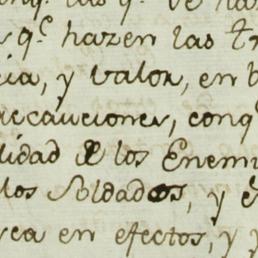 las q.e ve
q.e hazen las
cia, y valor, en
accauciones, conq
lidad de los Enemi
los Soldados, y
rea en efectos, y